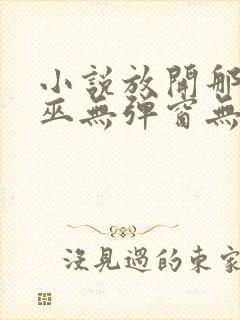 小說放開那
巫無彈窗無
沒見過的東家